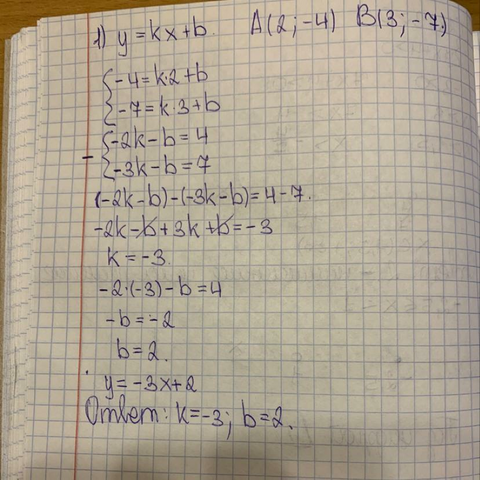 1) y = kx + b. A(2; -4) B(3; -7)
{-4 = k·2 + b
-7 = k·3 + b
- {-2k - b = 4
-3k - b = 7
(-2k - b) - (-3k - b) = 4 - 7.
-2k - b + 3k + b = -3
k = -3.
-2·(-3) - b = 4
-b = -2
b = 2.
y = -3x + 2
Ответ: k = -3; b = 2.